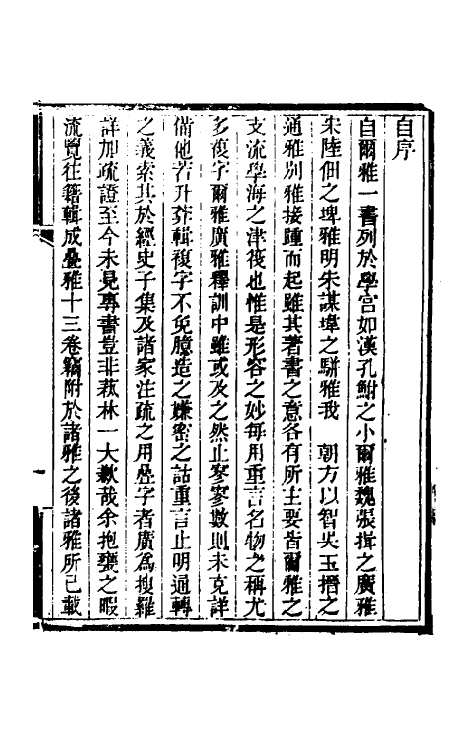 自序
自爾雅一書列於學宮如漢孔鮒之小爾雅魏張揖之廣雅
宋陸佃之埤雅明朱謀㙔之駢雅我　朝方以智吳玉搢之
通雅別雅接踵而起雖其著書之意各有所主要皆爾雅之
支流學海之津筏也惟是形容之妙每用重言名物之稱尤
多複字爾雅廣雅釋訓中雖或及之然止寥寥數則未克詳
備他若升菴輯複字不免臆造之嫌密之詁重言止明通轉
之義索其於經史子集及諸家注疏之用疊字者廣為搜羅
詳加疏證至今未見專書豈非萟林一大歉哉余抱甕之暇
流覽往籍輯成疊雅十三卷竊附於諸雅之後諸雅所已載